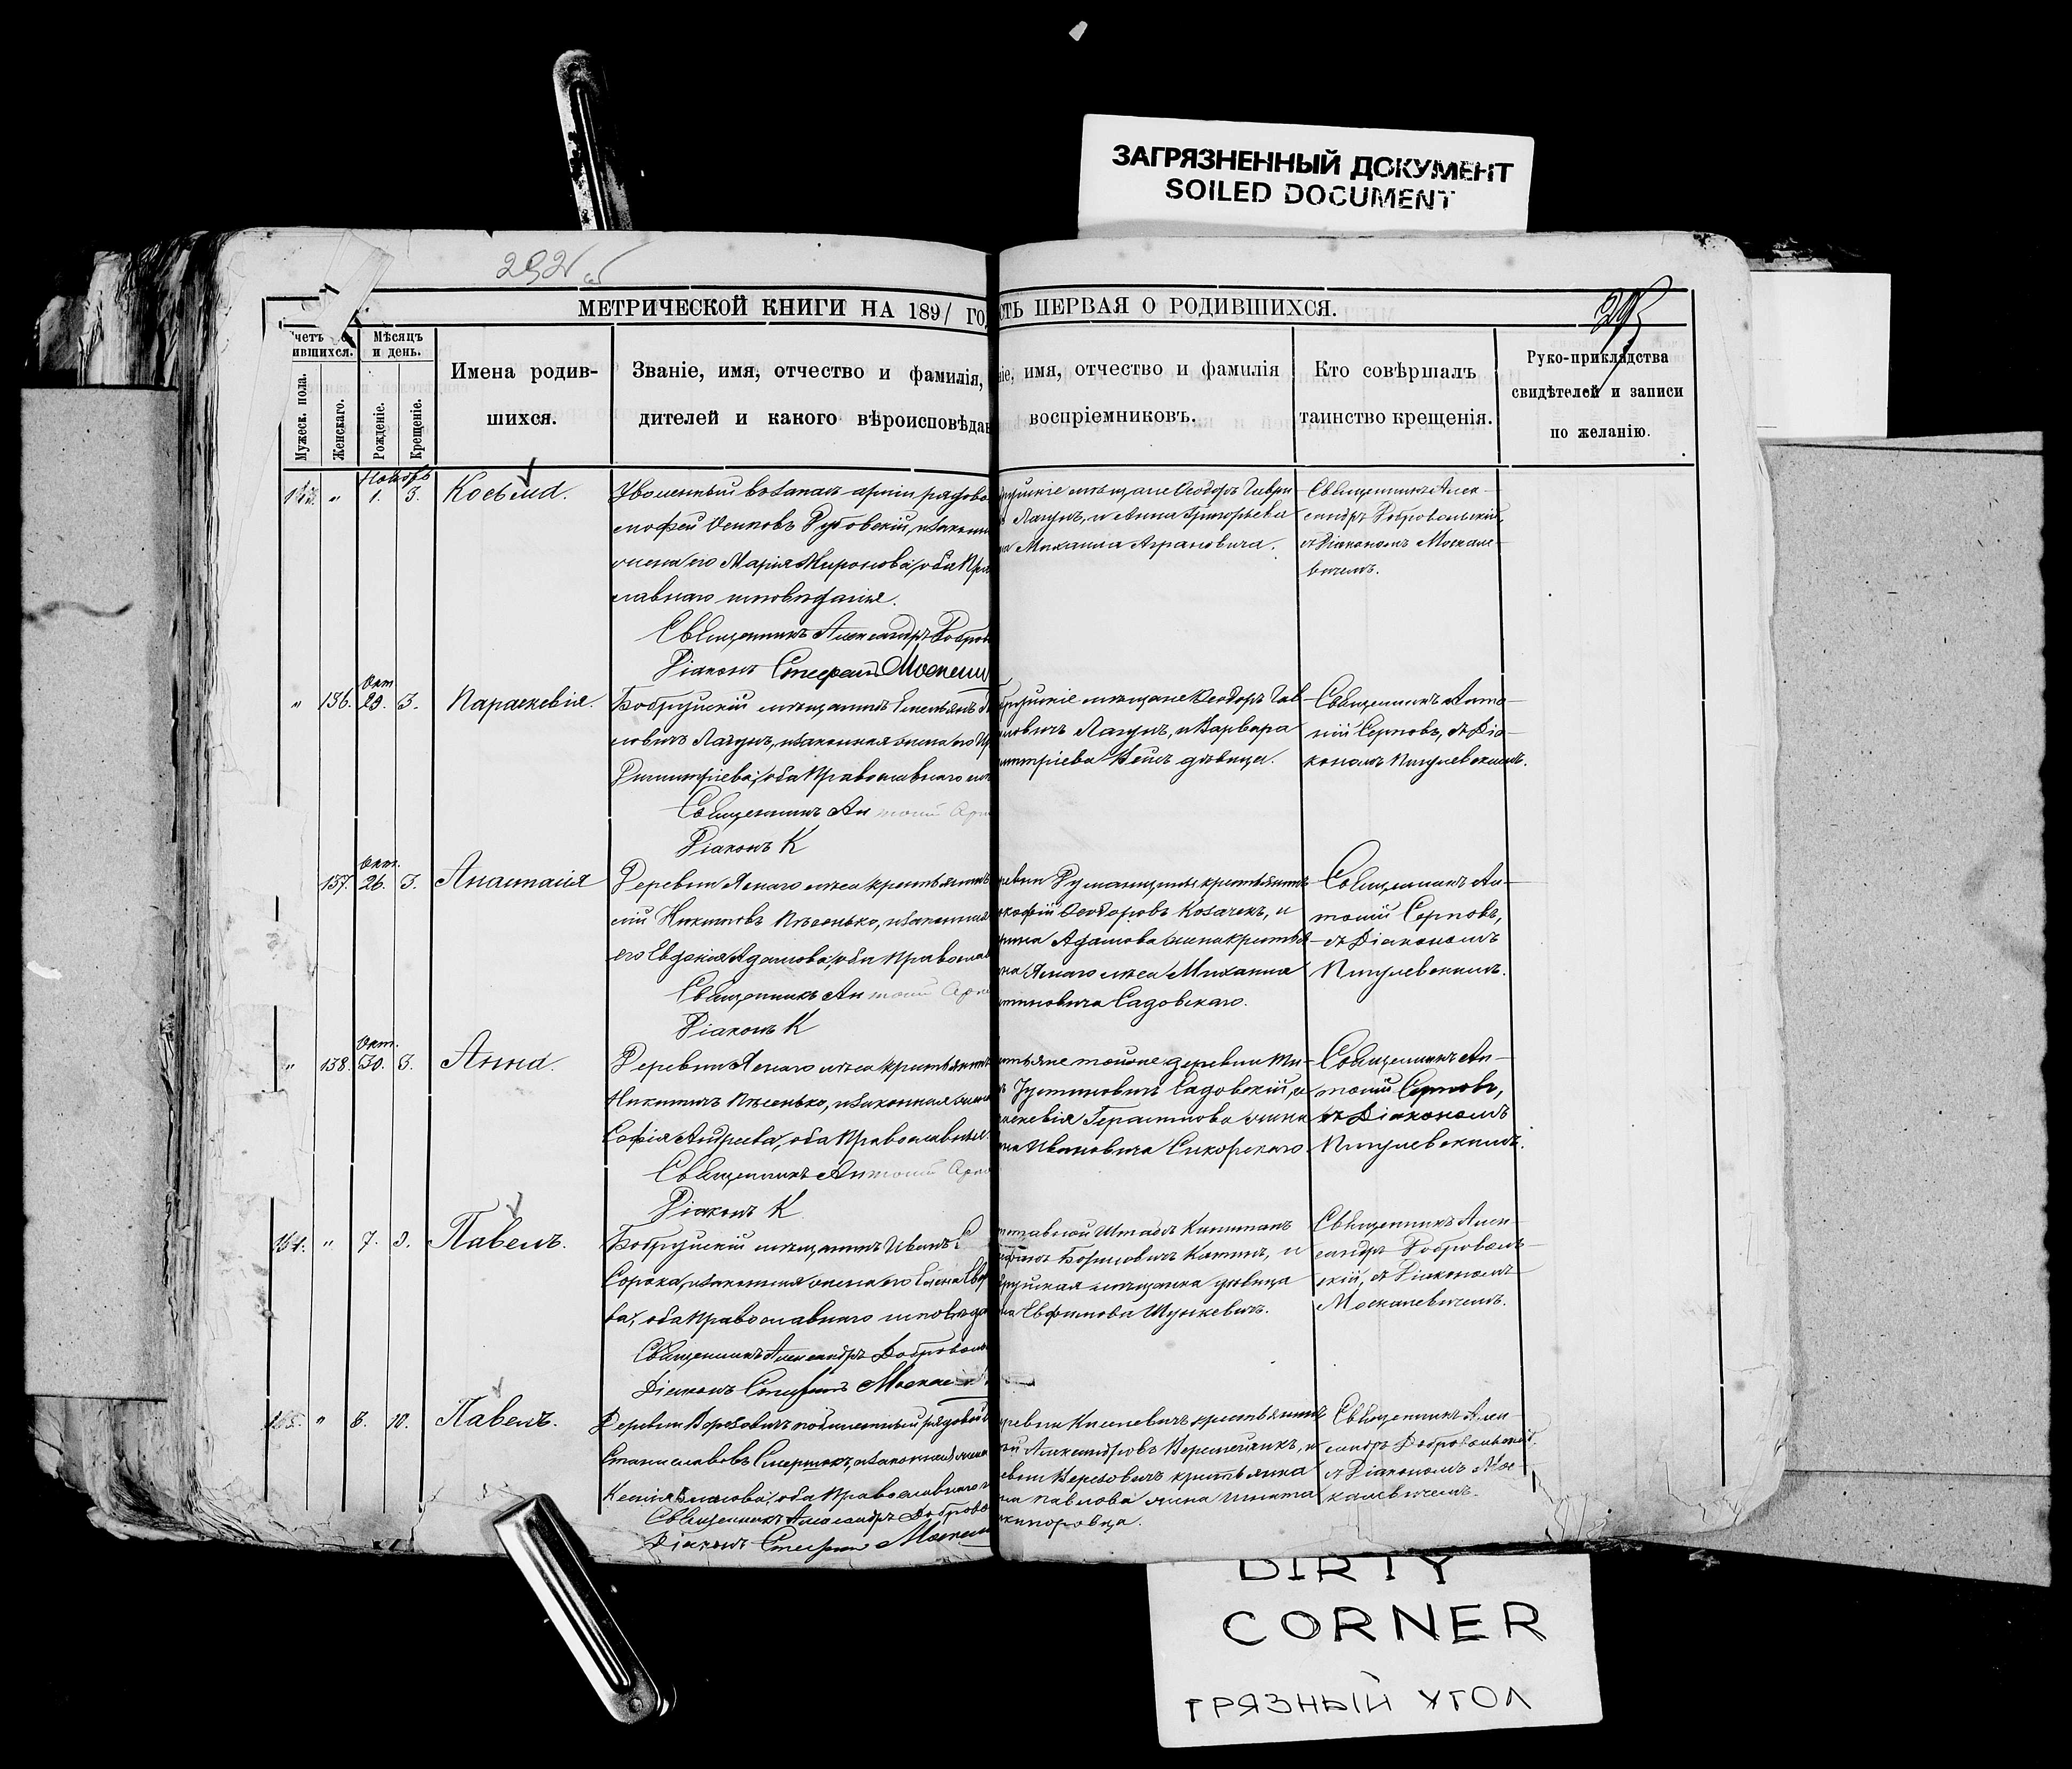 ЗАГРЯЗНЕННЫЙ ДОКУМЕНТ
SOILED DOCUMENT
292
293
МЕТРИЧЕСКОЙ КНИГИ НА 1891 ГО
СТЬ ПЕРВАЯ О РОДИВШИХСЯ.
четъ
ившихся.
Мужеск. пола.
Женскаго.
Мѣсяцъ
и день.
Рожденіе.
Крещеніе.
Имена родив-
шихся.
Званіе, имя, отчество и фамилія,
дителей и какого вѣроисповѣдан
ніе, имя, отчество и фамилія
воспріемниковъ.
Кто совѣршалъ
таинство крещенія.
Руко-прикладства
свидѣтелей и записи
по желанію.
Ноябрь
" 1. 3. Косьма.
Уволенный въ запасъ арміи рядово
Осиповъ
жена его Марія Миронова, оба Пра
славнаго исповѣданія.
Священникъ Александръ Добров
Діаконъ Стефанъ Москалев
мѣщане Ѳеодоръ Гаври
Лагунъ, и Анна Григорьева
Михаила
Священникъ Алек-
сандръ Добровольскій,
съ Діакономъ Москале-
вичемъ.
Окт.
" 136. 29. 3. Параскевія.
Бобруйскій мѣщанинъ Емельянъ
ловичъ Лагунъ, и законная жена его
Димитріева, оба Православнаго исп
Священникъ Антоній Серп
Діаконъ К
бруйскіе мѣщане Ѳеодоръ Гав-
иловичъ Лагунъ, и Варвара
имитріева дѣвица.
Священникъ Анто-
ній Серповъ, съ Діа-
кономъ Пигулевскимъ.
Окт.
137. 26. 3. Анастасія
Деревни Яснаго лѣса крестьянинъ
Никитовъ Пѣсенько, и законная
его Евдокія Адамова, оба Правосла
Священникъ Антоній Серпо
Діаконъ К
ревни крестьянинъ
кофій Ѳеодоровъ Козачекъ, и
Адамова жена крестья-
на Яснаго лѣса Михаила
стиновича Садовскаго.
Священникъ Ан-
тоній Серповъ,
съ Діакономъ
Пигулевскимъ.
Окт.
" 138. 30. 3. Анна.
Деревни Яснаго лѣса крестьянинъ
Никитичъ Пѣсенько, и законная жена
Софія Андреева, оба Православные.
Священникъ Антоній Серпо
Діаконъ К
стьяне тойже деревни Ми-
Іустиновичъ Садовскій, и
раскевія Герасимова жена
Ивановича Сикорскаго.
Священникъ Ан-
тоній Серповъ,
съ Діакономъ
Пигулевскимъ.
" 7. 9. Павелъ.
Бобруйскій мѣщанинъ Иванъ
Сорока, и законная жена его Елена
ва, оба Православнаго исповѣда
Священникъ Александръ Доброволь
Діаконъ Стефанъ Москалев
тставной Штабсъ Капитанъ
Борисовичъ и
бруйская мѣщанка дѣвица
Евфимова
Священникъ Алек-
сандръ Доброволь-
скій, съ Діакономъ
Москалевичемъ.
" 8. 10. Павелъ.
Деревни рядовой
Станиславовъ и законная жена
Ксенія оба Православнаго
Священникъ Александръ Доброво
Діаконъ Стефанъ Москалев
ревни Киселевичъ крестьянинъ
Александровъ Веремейчикъ, и
крестьянка
Павлова жена Игната
Священникъ Алек-
сандръ Добровольскій,
съ Діакономъ Мос-
калевичемъ.
DIRTY
CORNER
ГРЯЗНЫЙ УГОЛ